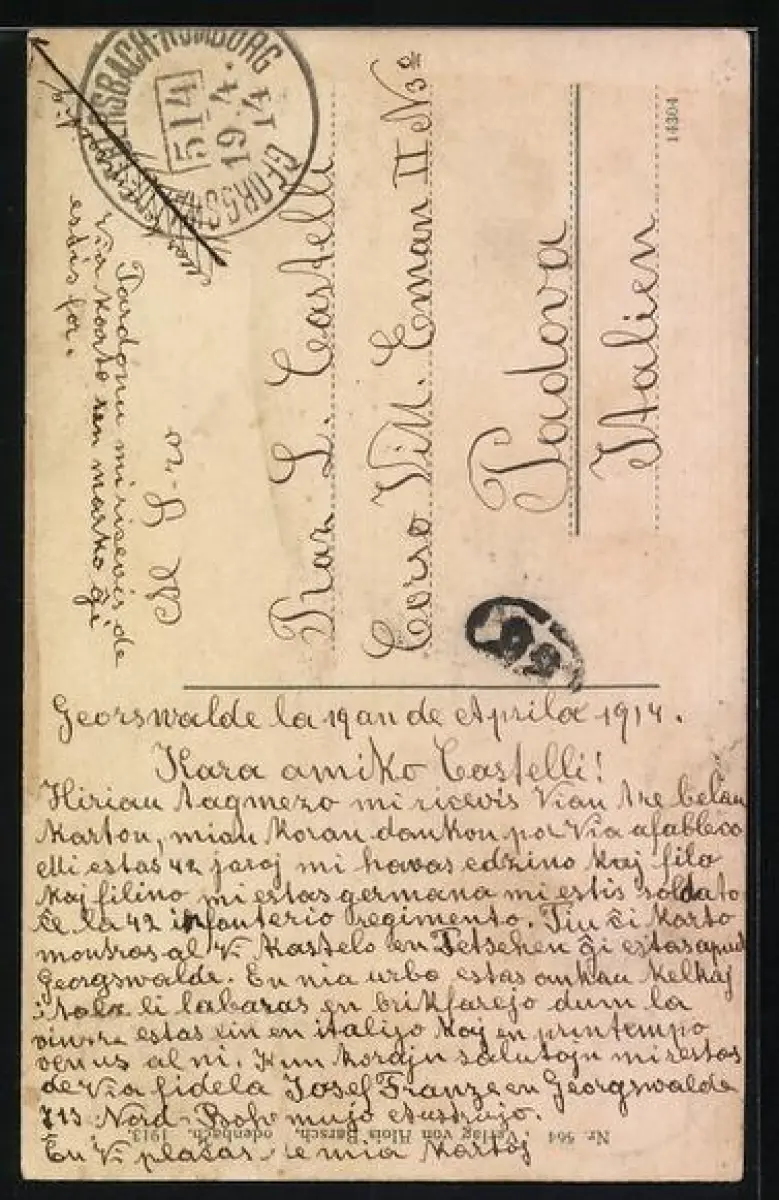 GEORGSWALDE-EBERSBACH-HOMBURG
514
19.4.
14
14304
Pardonu mi ricevis de
Via karto sen marko ĝi
estis for.
L. Castelli
Corso Vitt. Eman II N 3º
Padova
Italien
Georswalde la 19an de Aprila 1914.
Kara amiko Castelli!
Hiriau tagmezo mi ricevis Vian tre belan
karton, mian koran dankon por Via afableco
Mi estas 42 jaroj mi havas edzino kaj filo
kaj filino mi estas germana mi estis soldato
ĉe la 42 infanterio regimento. Tiu ĉi karto
montras al Vi kastelo en Tetschen ĝi estas apud
Georgswalde. En nia urbo estas ankau kelkaj
li labaras en brikfarejo dum la
estas en italijo kaj en printempo
venus al ni. Kun koraju salutoju mi restas
de Via fidela Josef Franze en Georgswalde
713 Nord-Bohmujo
Nr. 564 Verlag von Alois Bartsch, odenbach, 1913
Ĉu Vi plaĉas mia kartoj